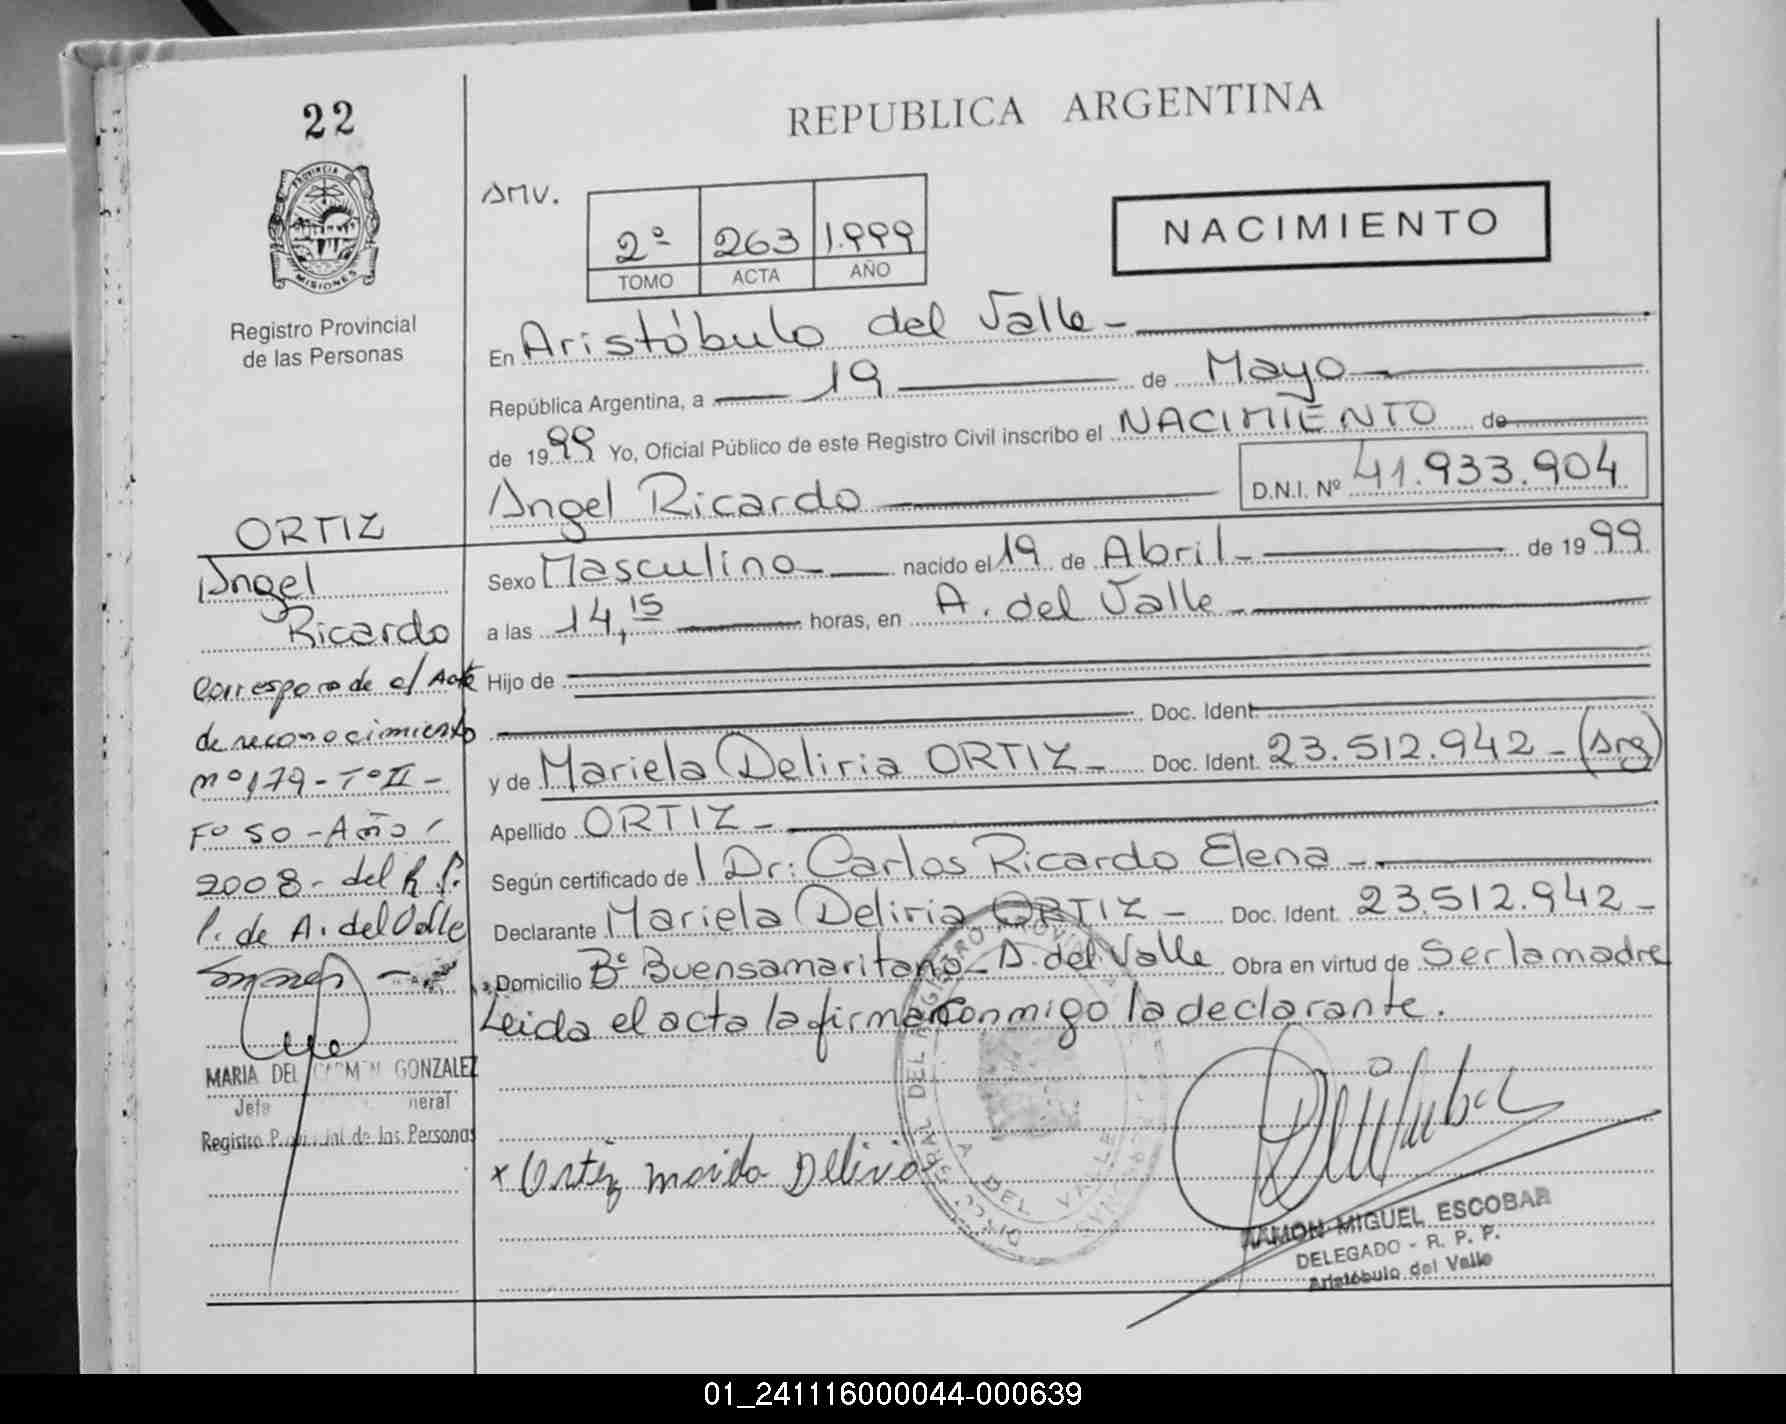 22
REPUBLICA ARGENTINA
PROVINCIA
MISIONES
Registro Provincial
de las Personas
AMV.
2º 263 1.999
TOMO ACTA AÑO
NACIMIENTO
En Aristóbulo del Valle -
República Argentina, a 19 de Mayo
de 1999 Yo, Oficial Público de este Registro Civil inscribo el NACIMIENTO de
Angel Ricardo
D.N.I. Nº 41.933.904
Sexo Masculino nacido el 19 de Abril - de 1999
a las 14,15 horas, en A. del Valle -
Hijo de
Doc. Ident.
y de Mariela Deliria ORTIZ - Doc. Ident. 23.512.942 - (Arg)
Apellido ORTIZ -
Según certificado de Dr: Carlos Ricardo Elena -
Declarante Mariela Deliria ORTIZ - Doc. Ident. 23.512.942 -
Domicilio Bº Buensamaritano - A. del Valle Obra en virtud de Ser la madre
Leida el acta la firma conmigo la declarante.
x Ortiz Deliria
A DEL VALLE
RAMON MIGUEL ESCOBAR
DELEGADO - R. P. P.
Aristóbulo del Valle
ORTIZ
Angel
Ricardo
Corresponde el Acta
de reconocimiento
nº 179 - Tº II -
Fº 50 - Año
2008 - del R.P.
P. de A. del Valle
MARIA DEL CARMEN GONZALEZ
Registro Provincial de las Personas
01_241116000044-000639